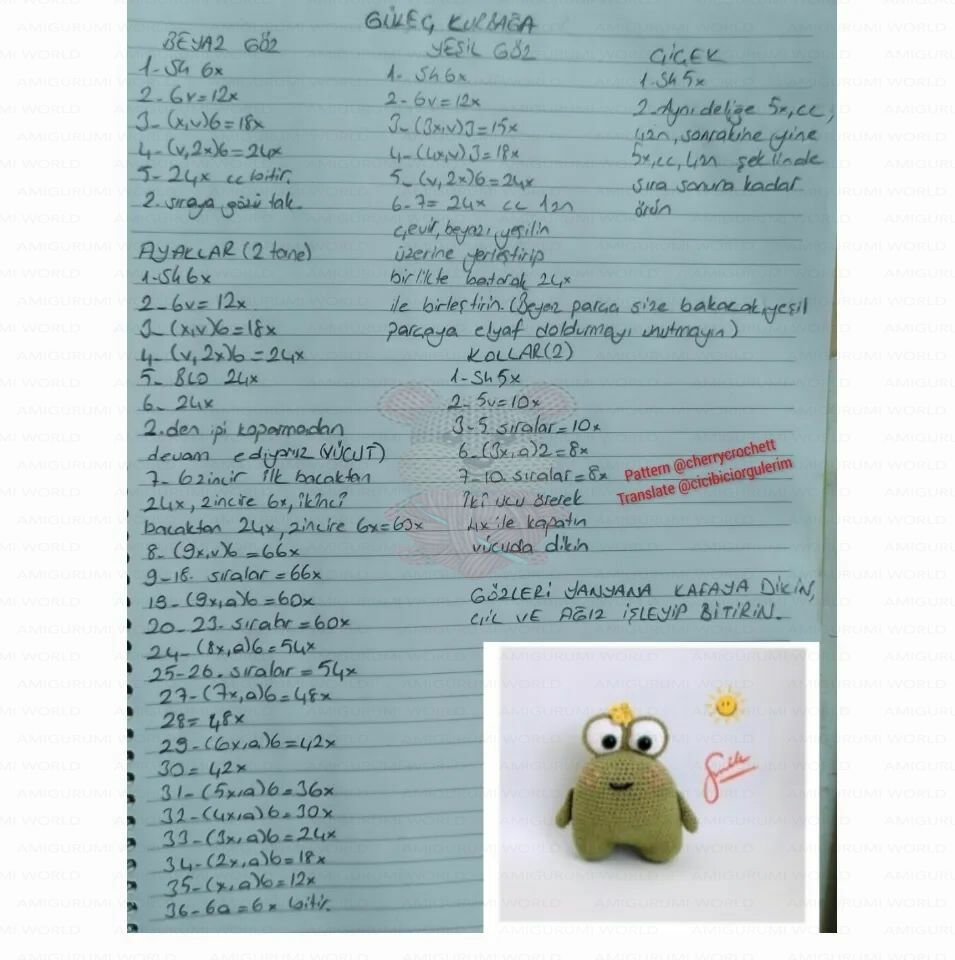 GÜLEÇ KURBAĞA
BEYAZ GÖZ
1- Sh 6x
2- 6v=12x
3- (x,v)6=18x
4- (v,2x)6=24x
5- 24x cc bitir.
2. sıraya gözü tak.
AYAKLAR (2 tane)
1- Sh 6x
2- 6v=12x
3- (x,v)6=18x
4- (v,2x)6=24x
5- BLO 24x
6- 24x
2.den ipi koparmadan
devam ediyoruz (VÜCUT)
7- 6 zincir ilk bacaktan
24x, zincire 6x, ikinci
bacaktan 24x, zincire 6x=60x
8- (9x,v)6=66x
9-18. sıralar=66x
19- (9x,a)6=60x
20-23. sıralar=60x
24- (8x,a)6=54x
25-26. sıralar=54x
27-(7x,a)6=48x
28= 48x
29-(6x,a)6=42x
30= 42x
31-(5x,a)6=36x
32-(4x,a)6=30x
33-(3x,a)6=24x
34-(2x,a)6=18x
35-(x,a)6=12x
36-6a=6x bitir.
YEŞİL GÖZ
1- Sh 6x
2- 6v=12x
3- (3x,v)3=15x
4- (4x,v)3=18x
5- (v,2x)6=24x
6-7= 24x cc 1zn
çevir, beyazı, yeşilin
üzerine yerleştirip
birlikte batarak 24x
ile birleştirin. (Beyaz parça size bakacak, yeşil
parçaya elyaf doldurmayı unutmayın)
KOLLAR(2)
1- Sh 5x
2- 5v=10x
3-5. sıralar=10x
6-(3x,a)2=8x
7-10. sıralar=8x
iki ucu örerek
4x ile kapatın
vücuda dikin
ÇİÇEK
1- Sh 5x
2- Aynı deliğe 5x,cc,
4zn, sonrakine yine
5x,cc,4zn şeklinde
sıra sonuna kadar
örün
Pattern @cherrycrochett
Translate @cicibiciorgulerim
GÖZLERİ YANYANA KAFAYA DİKİN,
ÇİL VE AĞIZ İŞLEYİP BİTİRİN.
Smile
AMIGURUMI WORLD